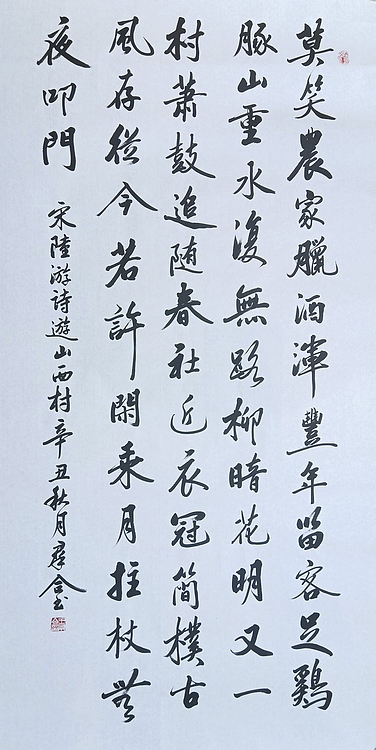 莫笑農家臘酒渾豐年留客足鷄
豚山重水復無路柳暗花明又一
村蕭鼓追随春社近衣冠簡樸古
風存從今若許閑乘月拄杖無
夜叩門
宋陸游詩遊山西村辛丑秋月群合书